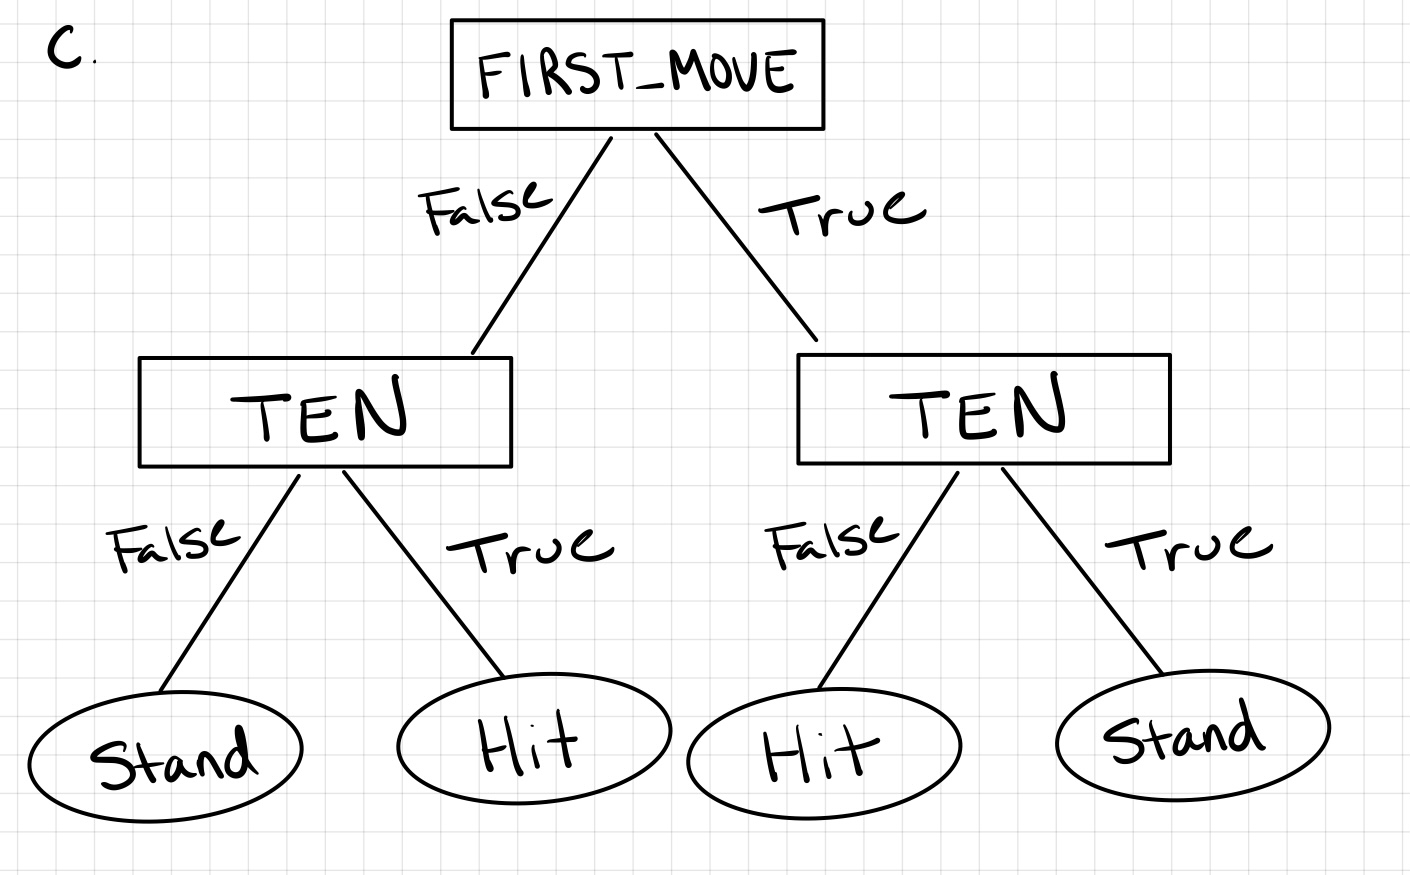 C.
FIRST_MOVE
False
True
TEN
TEN
False
True
False
True
Stand
Hit
Hit
Stand